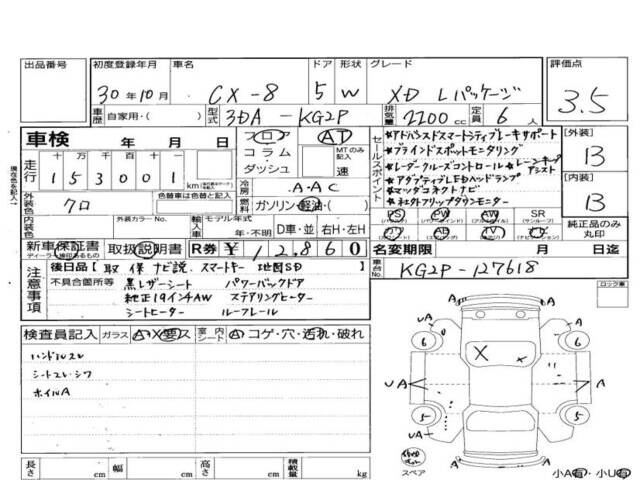 出品番号 初度登録年月 車名 ドア 形状 グレード 評価点
30年10月 CX-8 5 W XD Lパッケージ 3.5
車歴 自家用・( ) 型式 3DA-KG2P 排気量 2200cc 定員 6人
車検 年 月 日
フロア AT
コラム MTのみ記入
ダッシュ 速
セールスポイント
*アドバンスドスマートシティブレーキサポート
*ブラインドスポットモニタリング
*レーダークルーズコントロール *レーンキープアシスト
*アダプティブLEDヘッドランプ
*マツダコネクトナビ
*社外フリップダウンモニター
[外装]
B
[内装]
B
走行 十万 万 千 百 十 一
153001 km
冷房 AAC
外装色 クロ 色替車は色替え前( )
燃料 ガソリン・軽油・( )
PS PW AW SR
(サンルーフ)
AB TV
純正品のみ丸印
現在の色を記入→
内装色 外装カラーNo. 輸入車 モデル年式 年・不明 D車・並 右H・左H
新車保証書 取扱説明書 R券 ¥12,860
名変期限 月 日迄
車台No. KG2P-127618
注意事項
後日品【取 保 ナビ説 スマートキー 地図SD】
不具合箇所等 黒レザーシート パワーバックドア
純正19インチAW ステアリングヒーター
シートヒーター ルーフレール
ロック車
検査員記入 ガラス A・X・要ス 室内シート A・コゲ・穴・汚れ・破れ
ハンドルスレ
シートスレ・シワ
ホイルA
A
UA A
6 6
X
UA A A
5 5
UA
A
A
スペア
小A 小U
長さ cm 幅 cm 高さ cm 積載量 kg